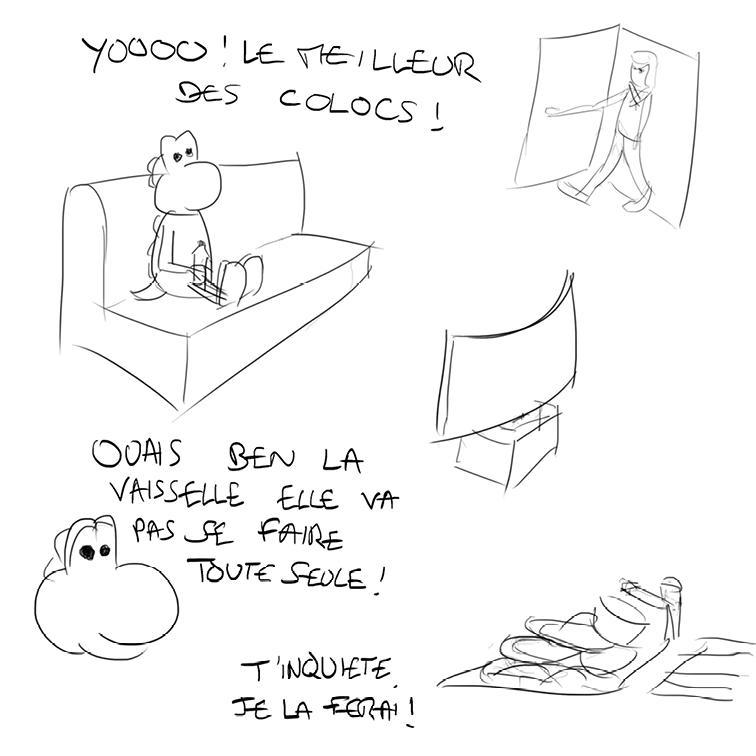 YOOOO ! LE MEILLEUR
DES COLOCS !
OUAIS BEN LA
VAISSELLE ELLE VA
PAS SE FAIRE
TOUTE SEULE !
T'INQUIETE
JE LA FERAI !